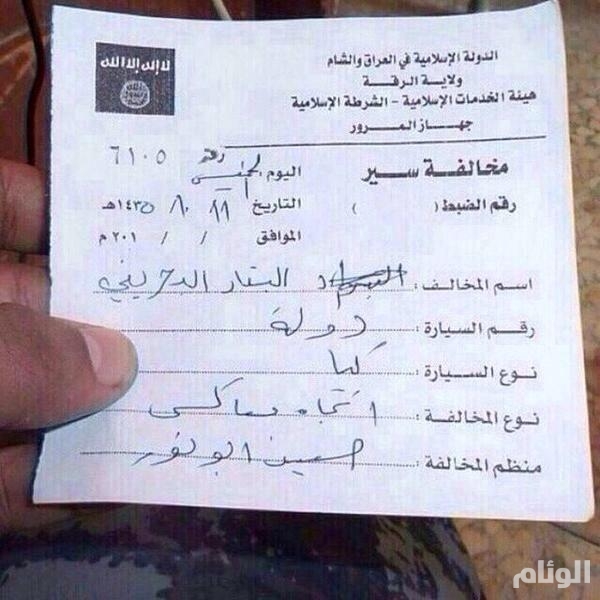 لا إله إلا الله
الدولة الإسلامية في العراق والشام
ولاية الرقة
هيئة الخدمات الإسلامية - الشرطة الإسلامية
جهاز المرور
رقم ٦١٠٥
مخالفة سير
اليوم الخميس
رقم الضبط ( )
التاريخ ١٤٣٥هـ
الموافق / / ٢٠١ م
اسم المخالف : البتار البحريني
رقم السيارة : دولة
نوع السيارة : كيا
نوع المخالفة : اتجاه معاكس
منظم المخالفة : حسين ابو نور
الوئام